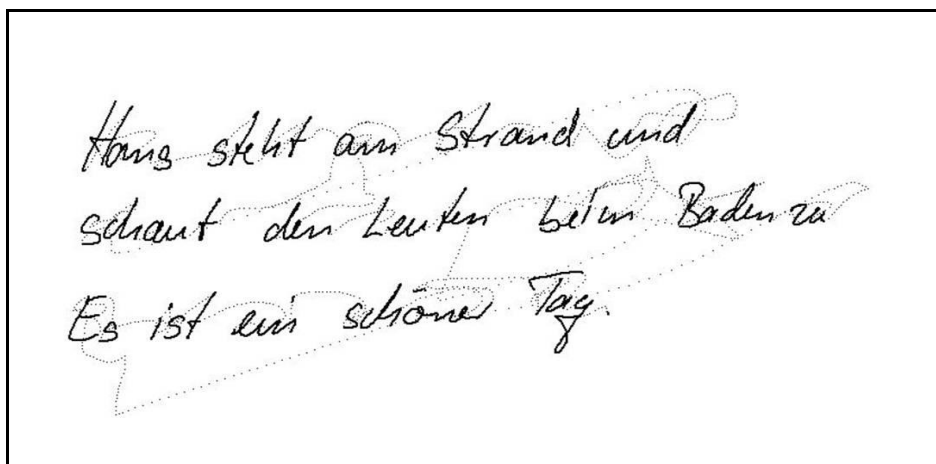 Hans steht am Strand und
schaut den Leuten beim Baden zu
Es ist ein schöner Tag.